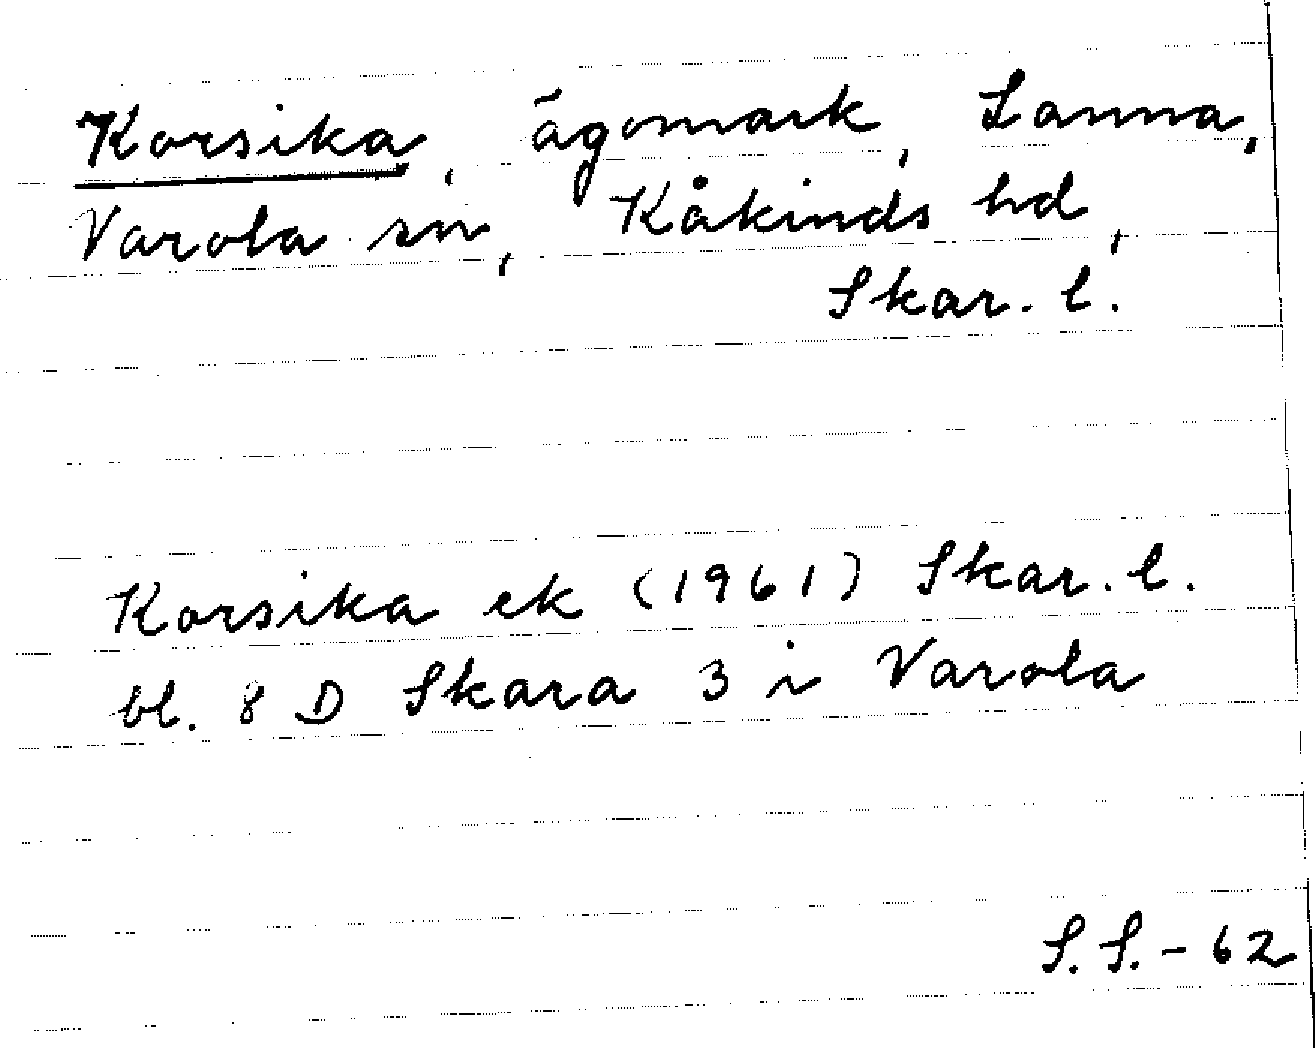 Korsika, ägomark, Lanna,
Varola sn, Kåkinds hd,
Skar. l.
Korsika ek (1961) Skar. l.
bl. 8 D Skara 3 i Varola
S. S. - 62